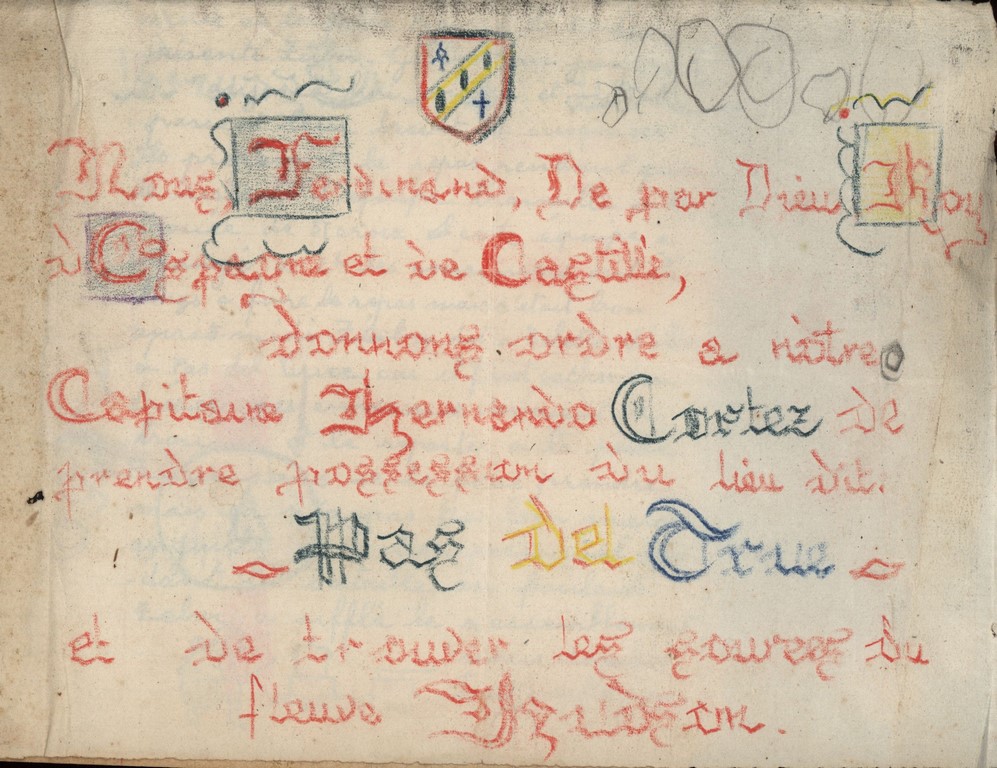 Nous Ferdinand, De par Dieu Roy
d'Espagne et de Castille,
donnons ordre a nôtre
Capitaine Hernando Cortez de
prendre possession du lieu dit:
~ Pas del Truc ~
et de trouver les sources du
fleuve Hudson.